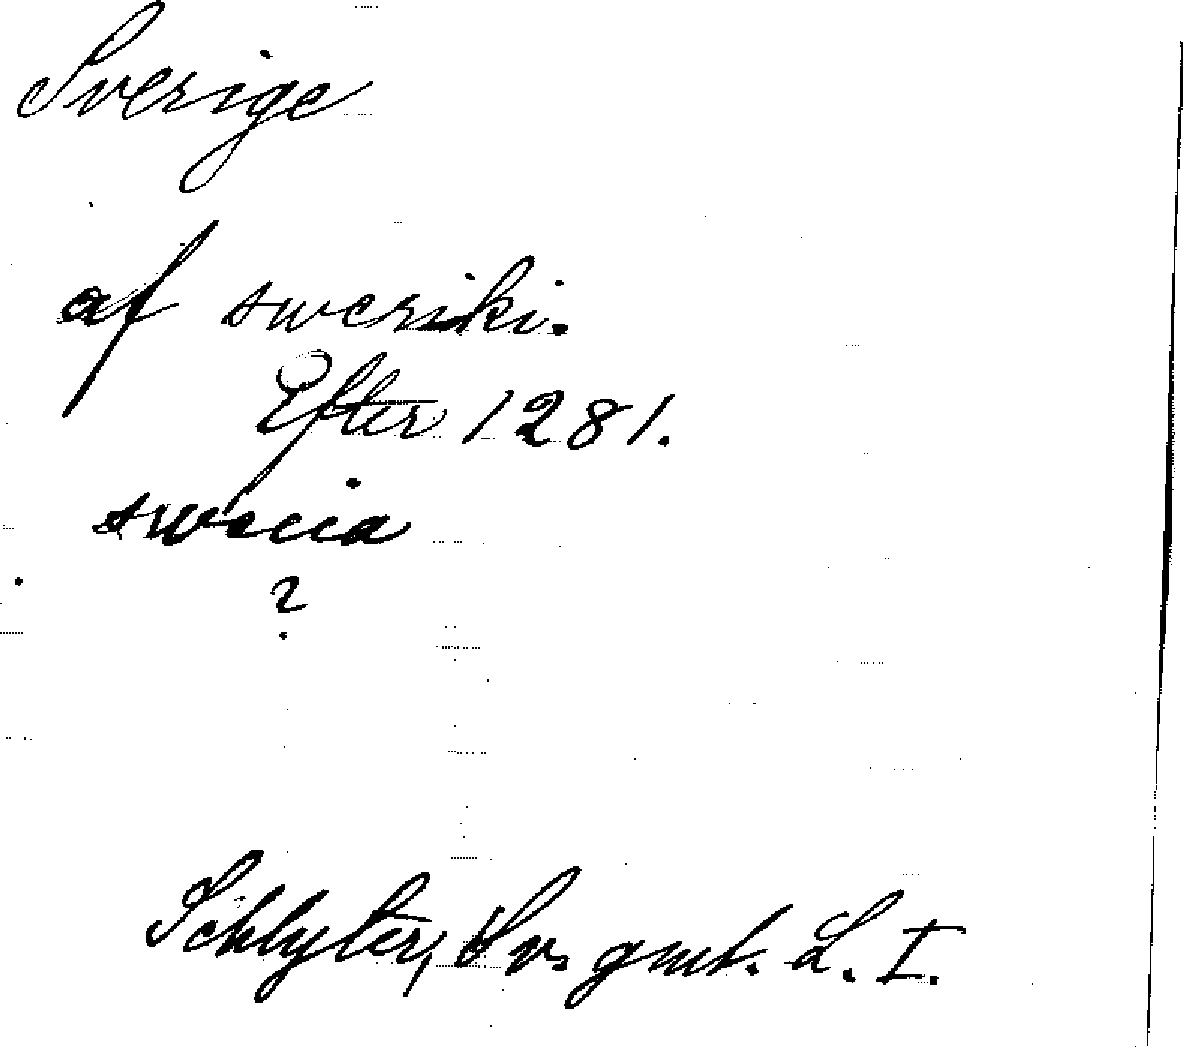 Sverige
af sweriki.
Efter 1281.
swecia
?
Schlyter, Sv. gml. L. I.